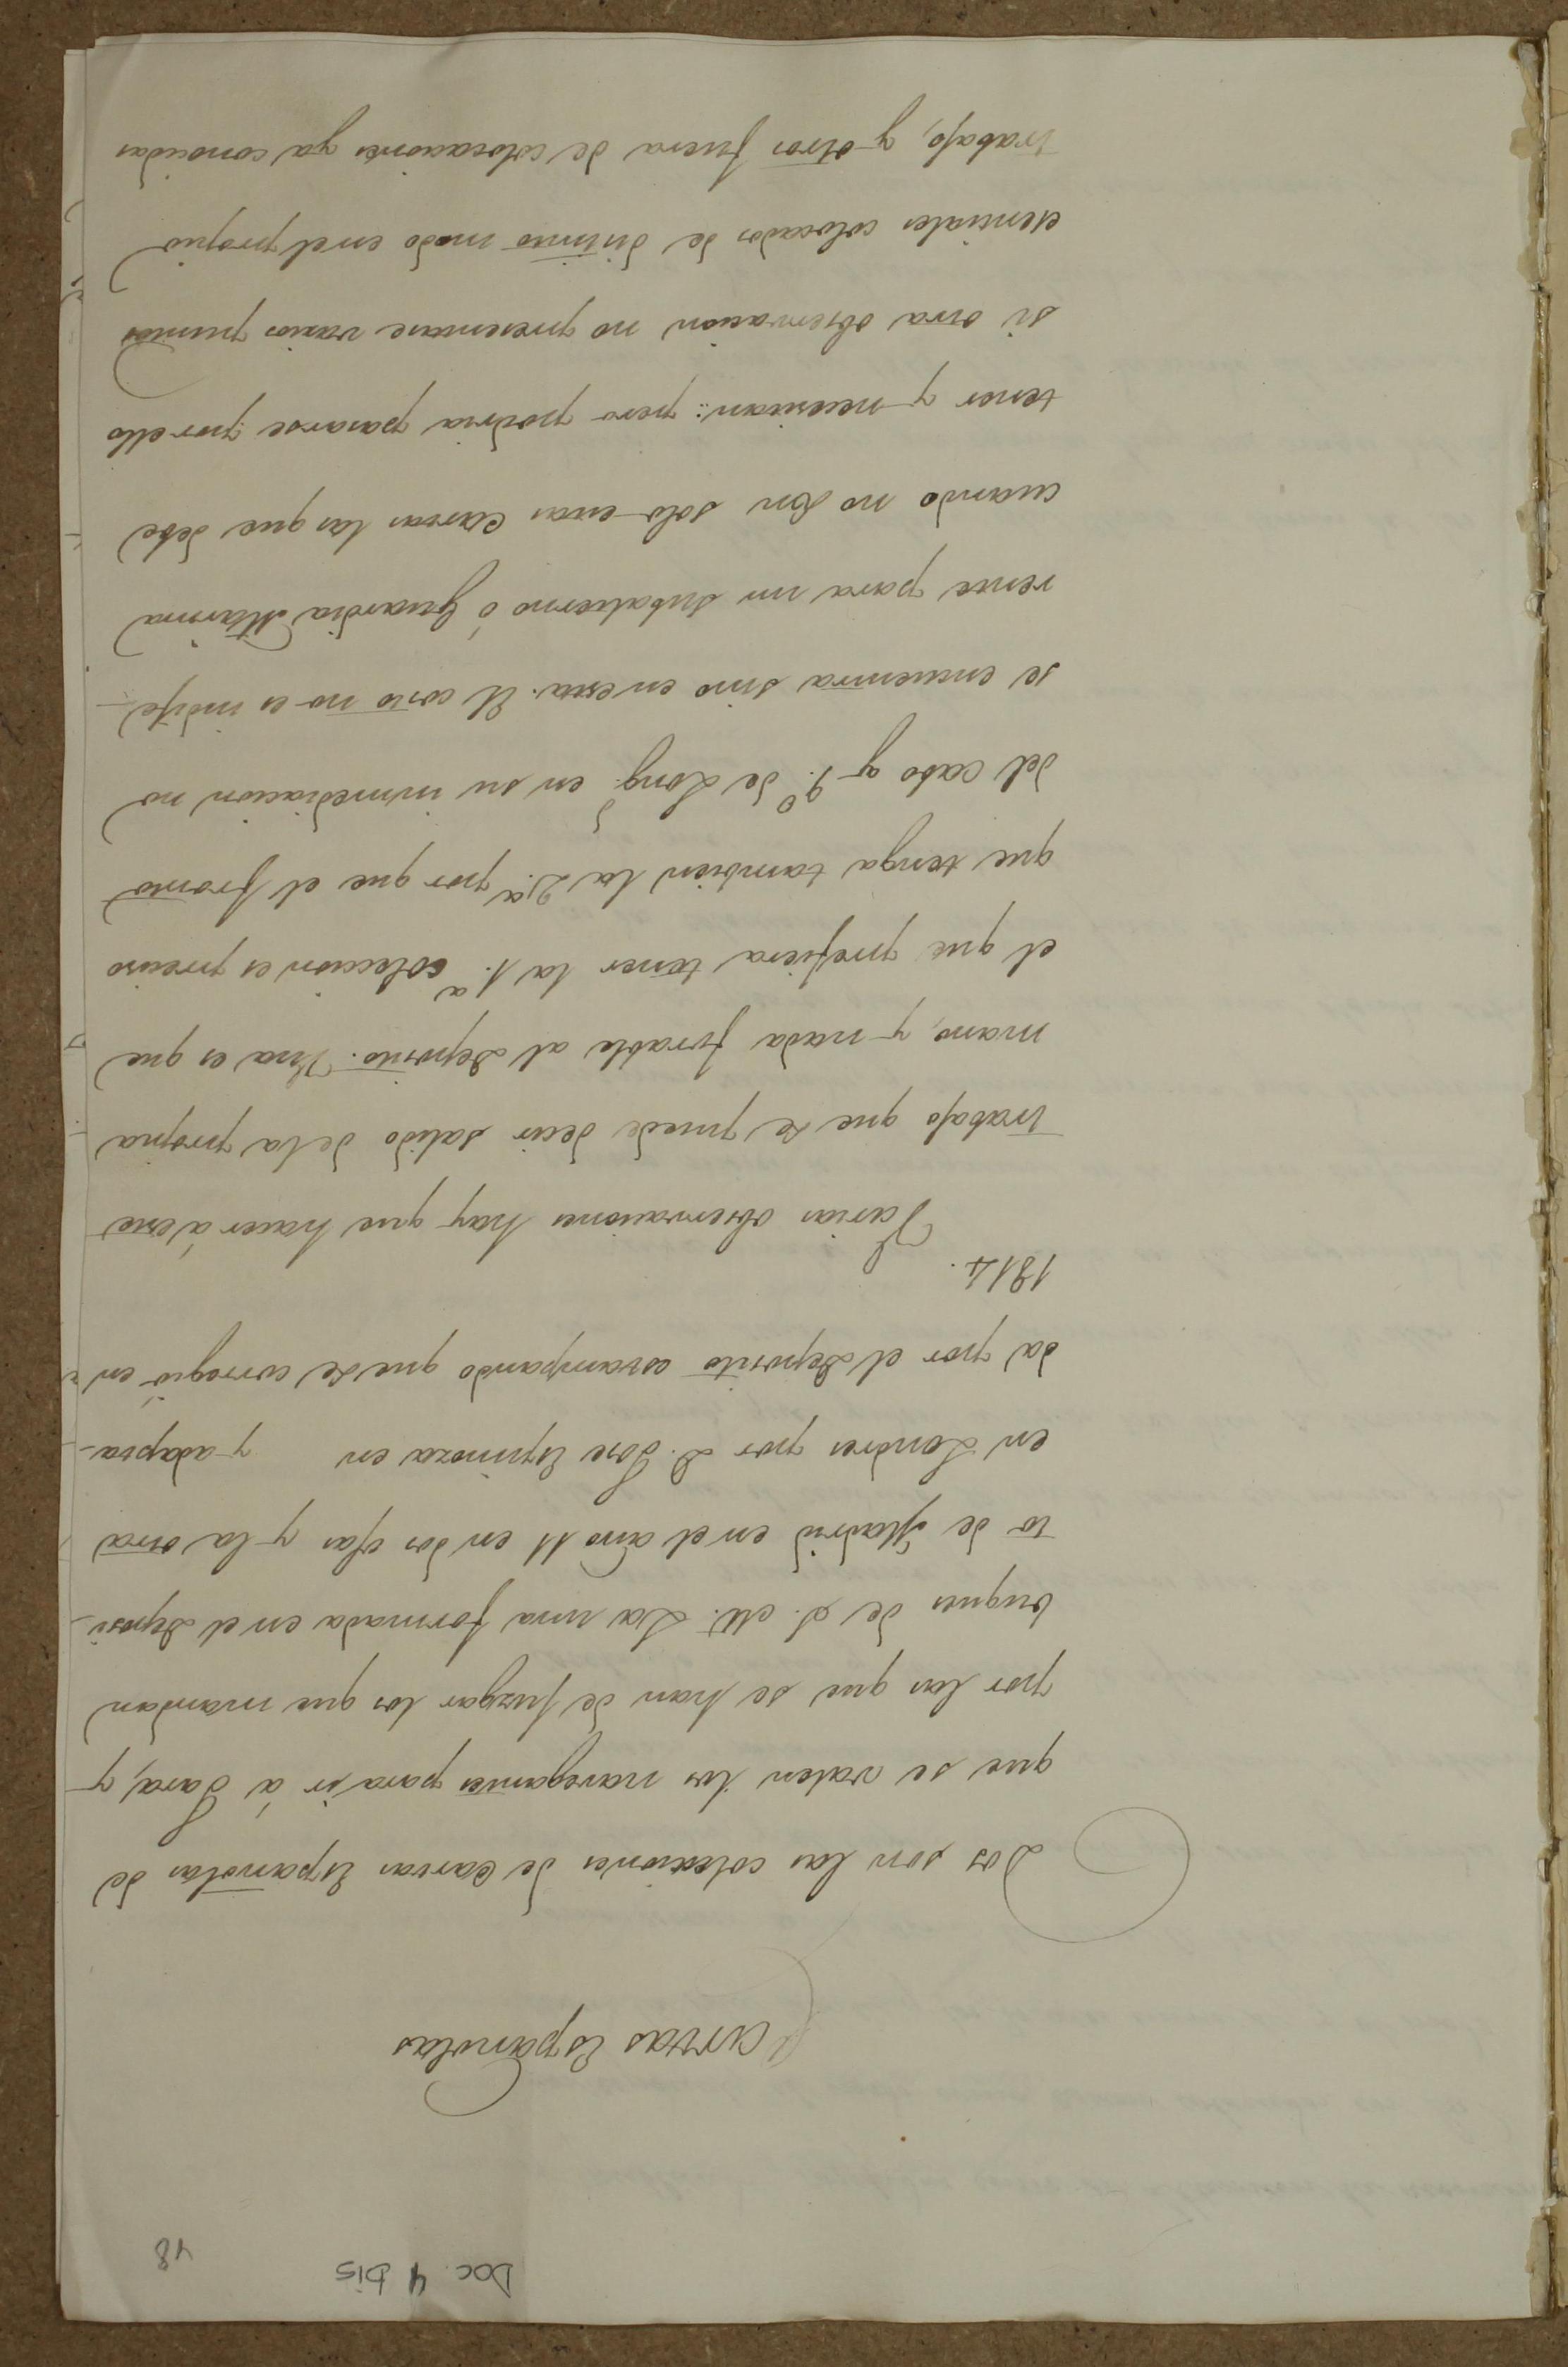 Doc. 4 bis
48
Cartas Españolas
Dos son las colecciones de Cartas Españolas de
que se valen los navegantes para ir á Java, y
por las que se han de juzgar los que mandan
buques de S. M. La una formada en el Deposi-
to de Madrid en el año 11 en dos ojas y la otra
en Londres por D. Jose Espinoza en y adapta-
da por el Deposito estampando que se corregió en
1814.
Varias observaciones hay que hacer á este
trabajo que se puede decir salido de la propia
mano, y nada forable al Deposito. Una es que
el que prefiera tener la 1.a coleccion es preciso
que tenga tambien la 2.a por que el fronto
del cabo y 9.o de Long.d en su inmediacion no
se encuentra sino en esta. El costo no es indife-
rente para un subalterno ó Guardia Marina
cuando no son solo estas Cartas las que debe
tener y necesitan: pero podria pasarse por ello
si otra observacion no presentase varios puntos
esenciales colocados de distinto modo en el propio
trabajo, y otros fuera de colocaciones ya conocidas